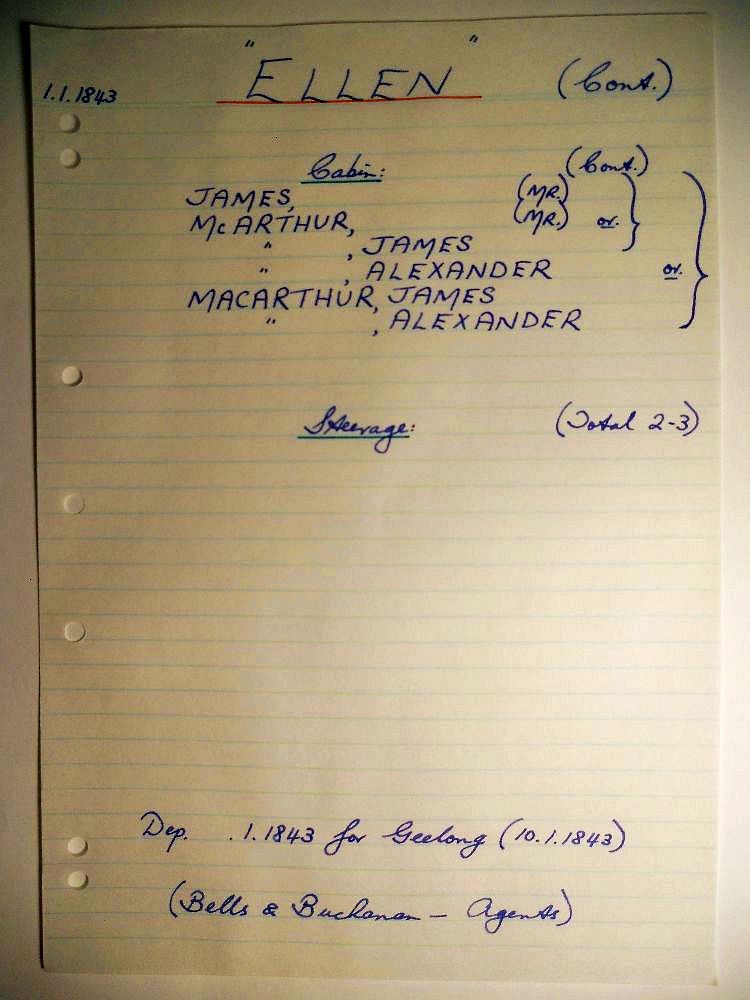 "ELLEN" (Cont.)
1.1.1843
Cabin: (Cont.)
JAMES, (MR.)
McARTHUR, (MR.) or.
" , JAMES
" , ALEXANDER or.
MACARTHUR, JAMES
" , ALEXANDER
Steerage: (Total 2-3)
Dep. .1.1843 for Geelong (10.1.1843)
(Bells & Buchanan — Agents)